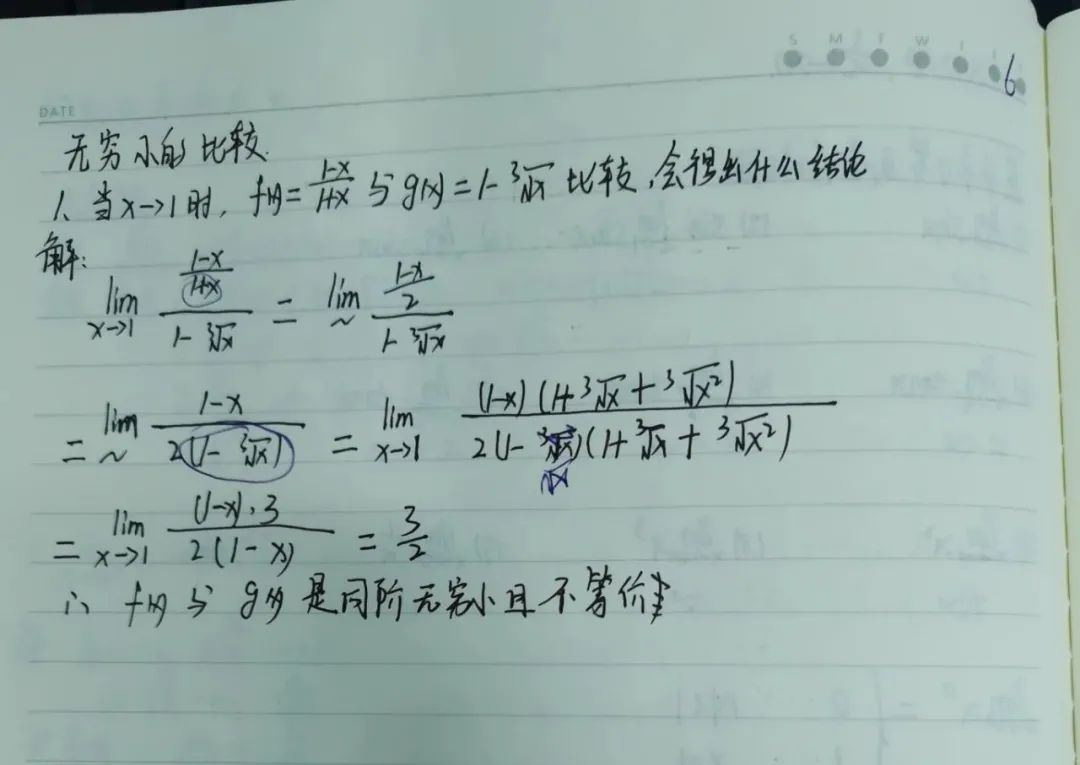 S M T W T F
6
DATE
无穷小的比较.
1、当x→1时, f(x)=\frac{1-x}{1+x} 与 g(x)=1-\sqrt[3]{x} 比较,会得出什么结论
解:
\lim_{x→1} \frac{\frac{1-x}{1+x}}{1-\sqrt[3]{x}} = \lim_{\sim} \frac{\frac{1-x}{2}}{1-\sqrt[3]{x}}
= \lim_{\sim} \frac{1-x}{2(1-\sqrt[3]{x})} = \lim_{x→1} \frac{(1-x)(1+\sqrt[3]{x}+\sqrt[3]{x^2})}{2(1-\sqrt[3]{x})(1+\sqrt[3]{x}+\sqrt[3]{x^2})}
= \lim_{x→1} \frac{(1-x)·3}{2(1-x)} = \frac{3}{2}
∴ f(x) 与 g(x) 是同阶无穷小且不等价